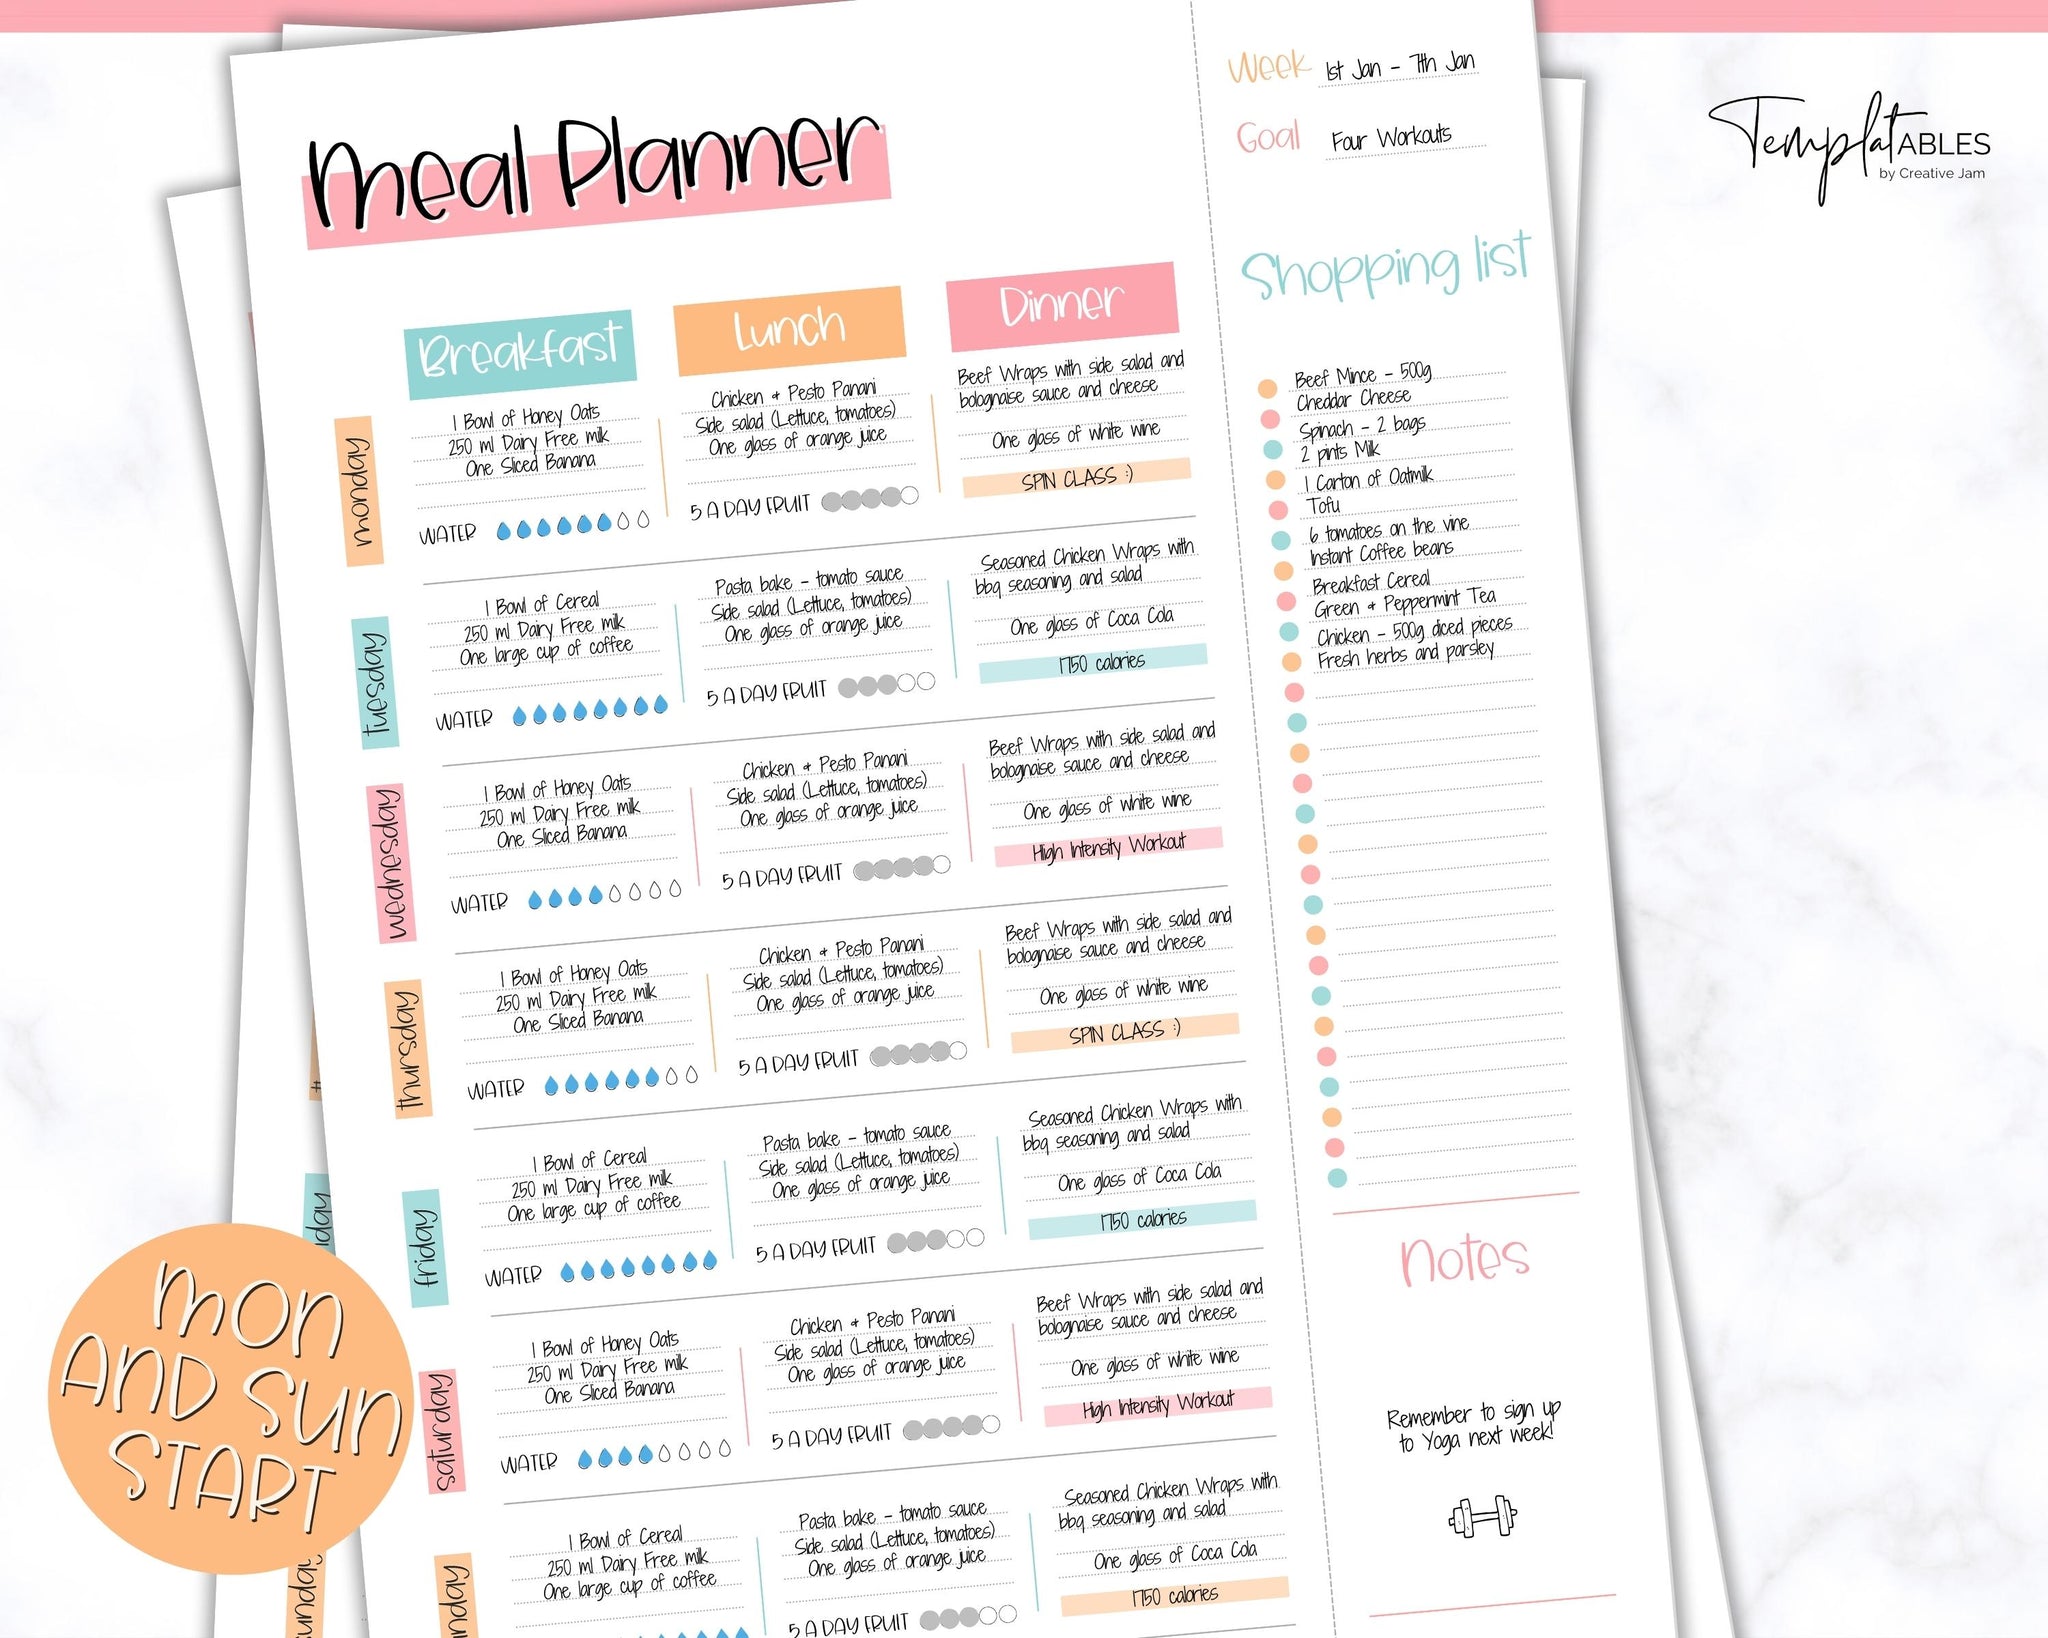 Meal Planner
Week 1st Jan - 7th Jan
Goal Four Workouts
TemplatABLES
by Creative Jam
Breakfast
Lunch
Dinner
monday
1 Bowl of Honey Oats
250 ml Dairy Free milk
One Sliced Banana
WATER
Chicken + Pesto Panani
Side salad (Lettuce, tomatoes)
One glass of orange juice
5 A DAY FRUIT
Beef Wraps with side salad and
bolognaise sauce and cheese
One glass of white wine
SPIN CLASS :)
tuesday
1 Bowl of Cereal
250 ml Dairy Free milk
One large cup of coffee
WATER
Pasta bake - tomato sauce
Side salad (Lettuce, tomatoes)
One glass of orange juice
5 A DAY FRUIT
Seasoned Chicken Wraps with
bbq seasoning and salad
One glass of Coca Cola
1750 calories
wednesday
1 Bowl of Honey Oats
250 ml Dairy Free milk
One Sliced Banana
WATER
Chicken + Pesto Panani
Side salad (Lettuce, tomatoes)
One glass of orange juice
5 A DAY FRUIT
Beef Wraps with side salad and
bolognaise sauce and cheese
One glass of white wine
High Intensity Workout
thursday
1 Bowl of Honey Oats
250 ml Dairy Free milk
One Sliced Banana
WATER
Chicken + Pesto Panani
Side salad (Lettuce, tomatoes)
One glass of orange juice
5 A DAY FRUIT
Beef Wraps with side salad and
bolognaise sauce and cheese
One glass of white wine
SPIN CLASS :)
friday
1 Bowl of Cereal
250 ml Dairy Free milk
One large cup of coffee
WATER
Pasta bake - tomato sauce
Side salad (Lettuce, tomatoes)
One glass of orange juice
5 A DAY FRUIT
Seasoned Chicken Wraps with
bbq seasoning and salad
One glass of Coca Cola
1750 calories
saturday
1 Bowl of Honey Oats
250 ml Dairy Free milk
One Sliced Banana
WATER
Chicken + Pesto Panani
Side salad (Lettuce, tomatoes)
One glass of orange juice
5 A DAY FRUIT
Beef Wraps with side salad and
bolognaise sauce and cheese
One glass of white wine
High Intensity Workout
nday
1 Bowl of Cereal
250 ml Dairy Free milk
One large cup of coffee
Pasta bake - tomato sauce
Side salad (Lettuce, tomatoes)
One glass of orange juice
5 A DAY FRUIT
Seasoned Chicken Wraps with
bbq seasoning and salad
One glass of Coca Cola
1750 calories
Shopping list
Beef Mince - 500g
Cheddar Cheese
Spinach - 2 bags
2 pints Milk
1 Carton of Oatmilk
Tofu
6 tomatoes on the vine
Instant Coffee beans
Breakfast Cereal
Green + Peppermint Tea
Chicken - 500g diced pieces
Fresh herbs and parsley
Notes
Remember to sign up
to Yoga next week!
MON
AND SUN
START
iday
unday